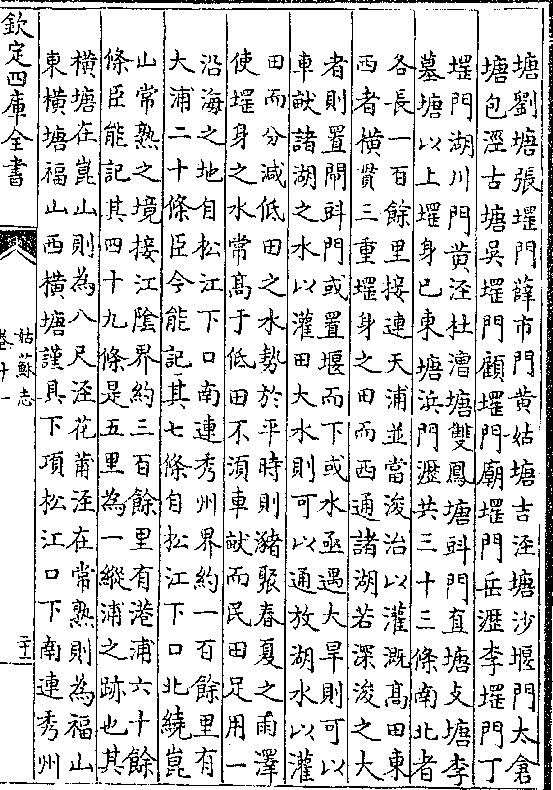 塘劉塘張堽門薛市門黄姑塘吉涇塘沙堰門太倉
塘包涇古塘吳堽門顧堽門廟堽門岳瀝李堽門丁
堽門湖川門黄涇杜漕塘雙鳳塘㪷門直塘支塘李
墓塘以上堽身已東塘浜門瀝共三十三條南北者
各長一百餘里接連天浦並當浚治以灌溉髙田東
西者橫貫三重堽身之田而西通諸湖若深浚之大
者則置閘㪷門或置堰而下或水亟遇大旱則可以
車畎諸湖之水以灌田大水則可以通放湖水以灌
田而分減低田之水勢於平時則瀦聚春夏之雨澤
使堽身之水常髙于低田不湏車畎而民田足用一
沿海之地自松江下口南連秀州界約一百餘里有
大浦二十條臣今能記其七條自松江下口北繞崑
山常熟之境接江隂界約三百餘里有港浦六十餘
條臣能記其四十九條是五里為一縱浦之跡也其
橫塘在崑山則為八尺涇花莆涇在常熟則為福山
東橫塘福山西橫塘謹具下項松江口下南連秀州
欽定四庫全書
姑蘇志
卷十一